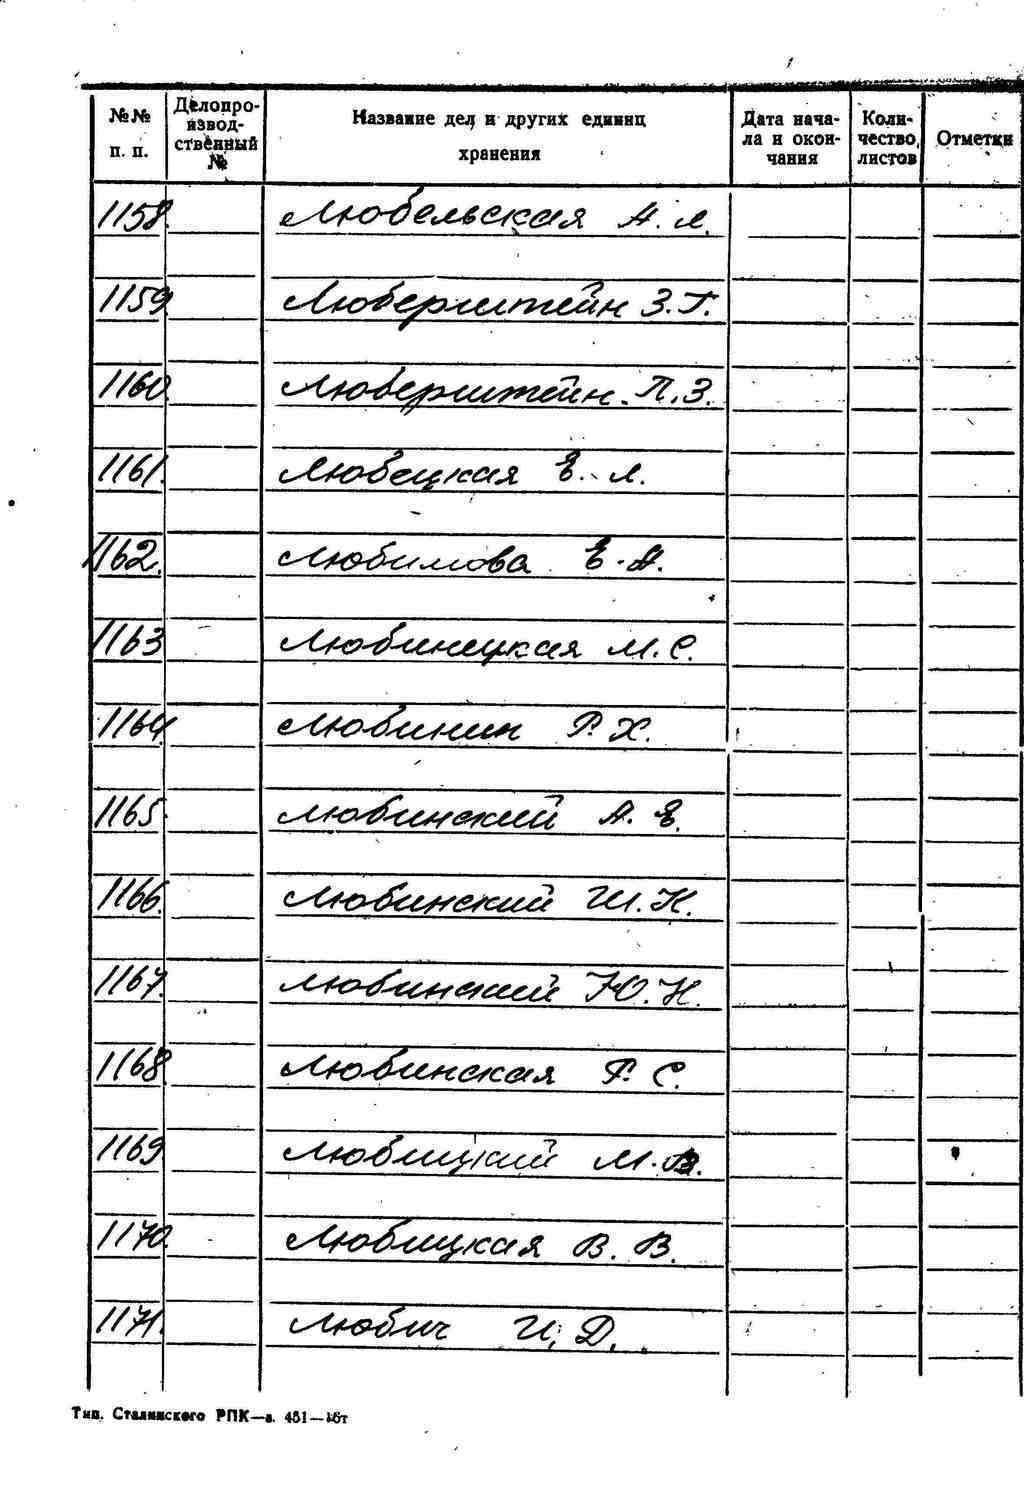 №№ п. п. Делопроизводственный № Название дел и других единиц хранения Дата начала и окончания Количество листов Отметки
1158. Любельская А. Л.
1159. Люберштейн З. Г.
1160. Люберштейн П. З.
1161. Любецкая Е. Л.
1162. Любимова Е. А.
1163 Любинецкая М. С.
1164 Любинин Р. Х.
1165 Любинский А. Е.
1166. Любинский Ш. Н.
1167. Любинский Ю. Н.
1168 Любинская Р. С.
1169 Любицкий М. В.
1170. Любицкая В. В.
1171. Любич И. Д.
Тип. Сталинского РПК—з. 451—16т